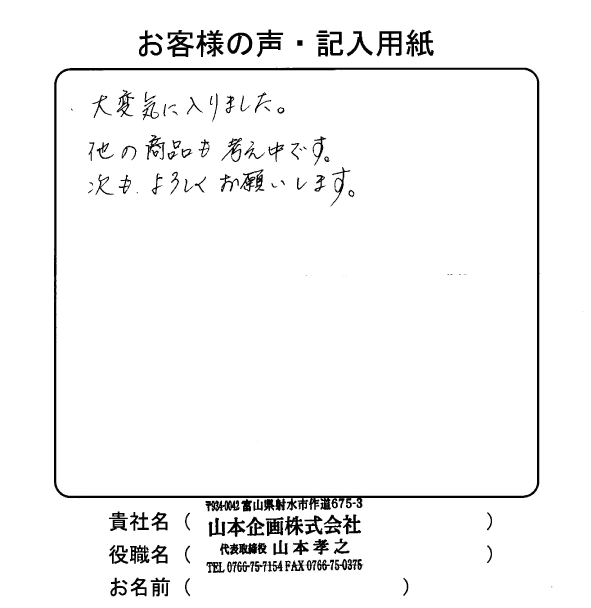 お客様の声・記入用紙
大変気に入りました。
他の商品も考え中です。
次も、よろしくお願いします。
〒934-0042 富山県射水市作道675-3
貴社名（ 山本企画株式会社 ）
役職名（ 代表取締役 山本孝之 ）
TEL 0766-75-7154 FAX 0766-75-0375
お名前（ ）